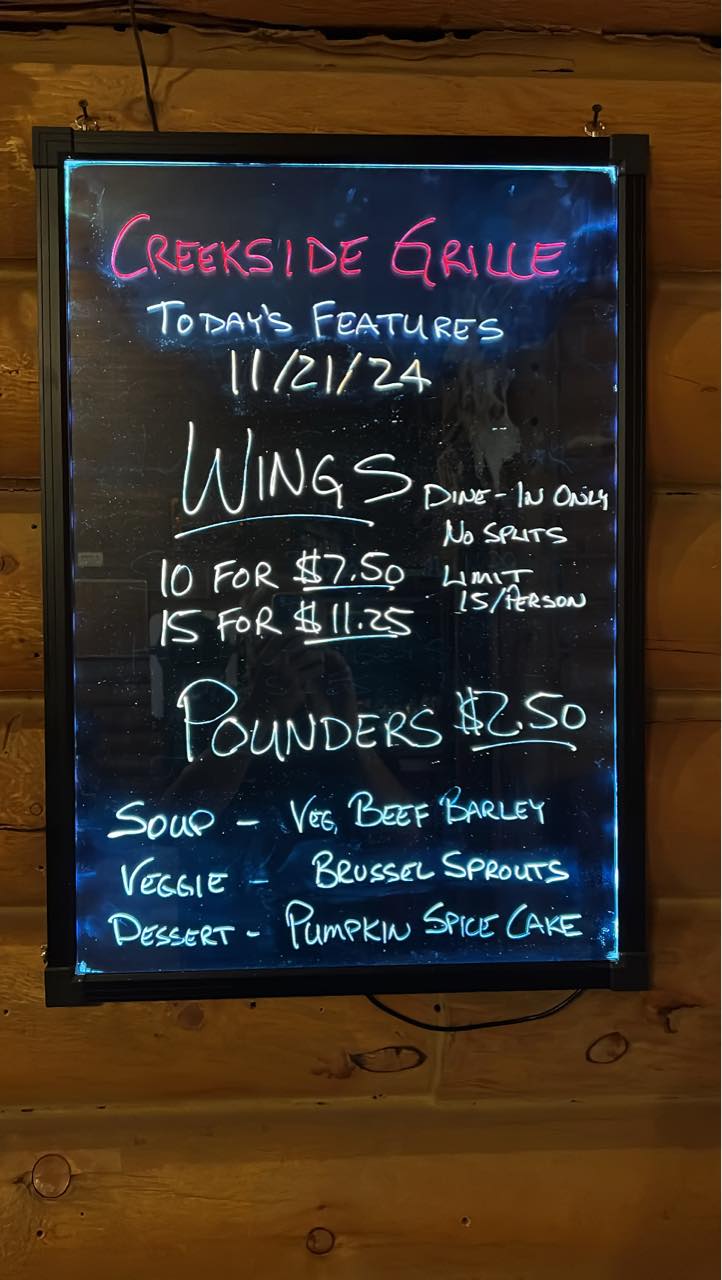 CREEKSIDE GRILLE
TODAY'S FEATURES
11/21/24
WINGS
DINE-IN ONLY
NO SPLITS
10 FOR $7.50
LIMIT
15/PERSON
15 FOR $11.25
POUNDERS $2.50
SOUP - VEG, BEEF BARLEY
VEGGIE - BRUSSEL SPROUTS
DESSERT - PUMPKIN SPICE CAKE